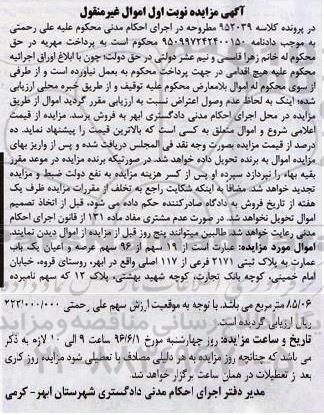 آگهی مزایده نوبت اول اموال غیرمنقول
در پرونده کلاسه ۹۵۲۰۳۹ مطروحه در اجرای احکام مدنی محکوم علیه علی رحمتی
به موجب دادنامه ۹۵۰۹۹۷۲۴۲۴۰۰۰۱۵۰ محکوم است به پرداخت مهریه در حق
محکوم له خانم زهرا قاسمی و نیم عشر دولتی در حق دولت؛ چون با ابلاغ اوراق اجرائیه
محکوم علیه هیچ اقدامی در جهت پرداخت محکوم به بعمل نیاورده است و از طرفی
از سوی محکوم له اموال بلامعارض محکوم علیه توقیف و از طریق خبره محلی ارزیابی
شده؛ اینک به لحاظ عدم وصول اعتراض نسبت به ارزیابی مقرر گردید اموال از طریق
مزایده در محل اجرای احکام مدنی دادگستری ابهر به فروش برسد. مزایده از قیمت
اعلامی شروع و اموال متعلق به کسی است که بالاترین قیمت را پیشنهاد نماید. ده
درصد از قیمت مزایده بصورت وجه نقد فی المجلس دریافت شده و پس از واریز بهای
مزایده اموال به برنده تحویل داده خواهد شد. در صورتیکه برنده مزایده در موعد مقرر
بقیه بهاء را نپردازد سپرده او پس از کسر هزینه مزایده به نفع دولت ضبط و مزایده
تجدید خواهد شد. مضافا به اینکه شکایت راجع به تخلف از مقررات مزایده ظرف یک
هفته از تاریخ فروش به دادگاه صادرکننده حکم داده می شود، قبل از اتخاذ تصمیم
اموال تحویل نخواهد شد. در صورت عدم مشتری مفاد ماده ۱۳۱ از قانون اجرای احکام
مدنی رعایت خواهد شد. طالبین میتوانند پنج روز قبل از مزایده از اموال دیدن نمایند.
اموال مورد مزایده: عبارت است از ۱۹ سهم از ۹۶ سهم عرصه و اعیان یک باب
عمارت به پلاک ثبتی ۲۱۷۱ فرعی از ۱۱۷ اصلی واقع در ابهر، روستای قروه، خیابان
امام خمینی، کوچه بانک تجارت، کوچه شهید بهشتی، پلاک ۱۲ که سهم نامبرده
۸۵/۰۶ متر مربع می باشد. با توجه به موقعیت ارزش سهم علی رحمتی ۲۲۲/۰۰۰/۰۰۰
ریال ارزیابی گردیده است.
تاریخ و ساعت مزایده: روز چهارشنبه مورخ ۹۶/۶/۱ ساعت ۹ الی ۱۰ لازم به ذکر
می باشد که چنانچه روز مزایده به هر دلیلی مصادف با تعطیلی شود مزایده روز کاری
بعد از تعطیلات در همان ساعت برگزار خواهد شد.
مدیر دفتر اجرای احکام مدنی دادگستری شهرستان ابهر- کرمی